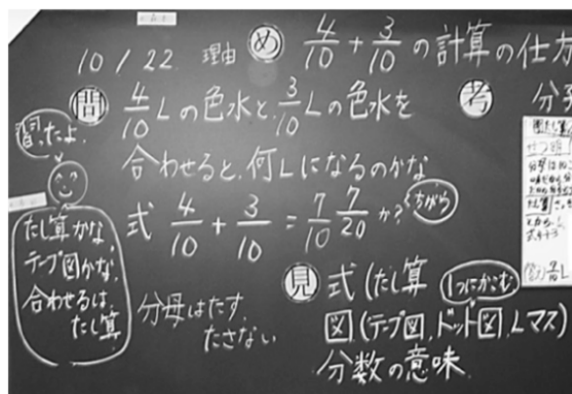 10/22 理由 め 4/10 + 3/10 の計算の仕方
問 4/10 Lの色水と、3/10 Lの色水を
合わせると、何Lになるのかな
式 4/10 + 3/10 = 7/10 7/20 か?
ちがう
習ったよ。
たし算かな、
テープ図かな、
合わせるは、
たし算
分母はたす、
たさない
見 式(たし算
1つにかこむ
図(テープ図、ドット図、Lマス)
分数の意味
考 分子